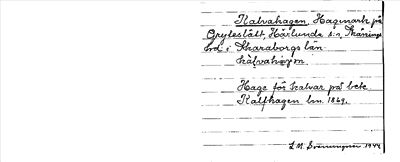 Kalvahagen, Hagmark på
Gryleslätt, Härlunda s:n, Skånings
hd, Skaraborgs län.
kalvahagen.
Hage för kalvar på bete.
Kalfhagen lm. 1869.
1944